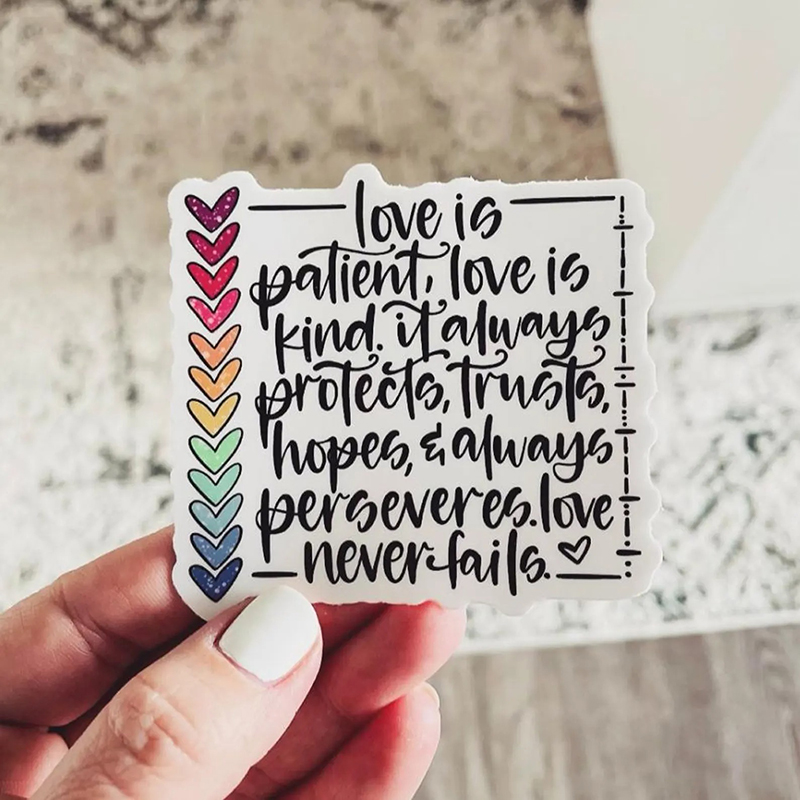 love is
patient, love is
kind. it always
protects, trusts,
hopes, & always
perseveres. love
never fails.